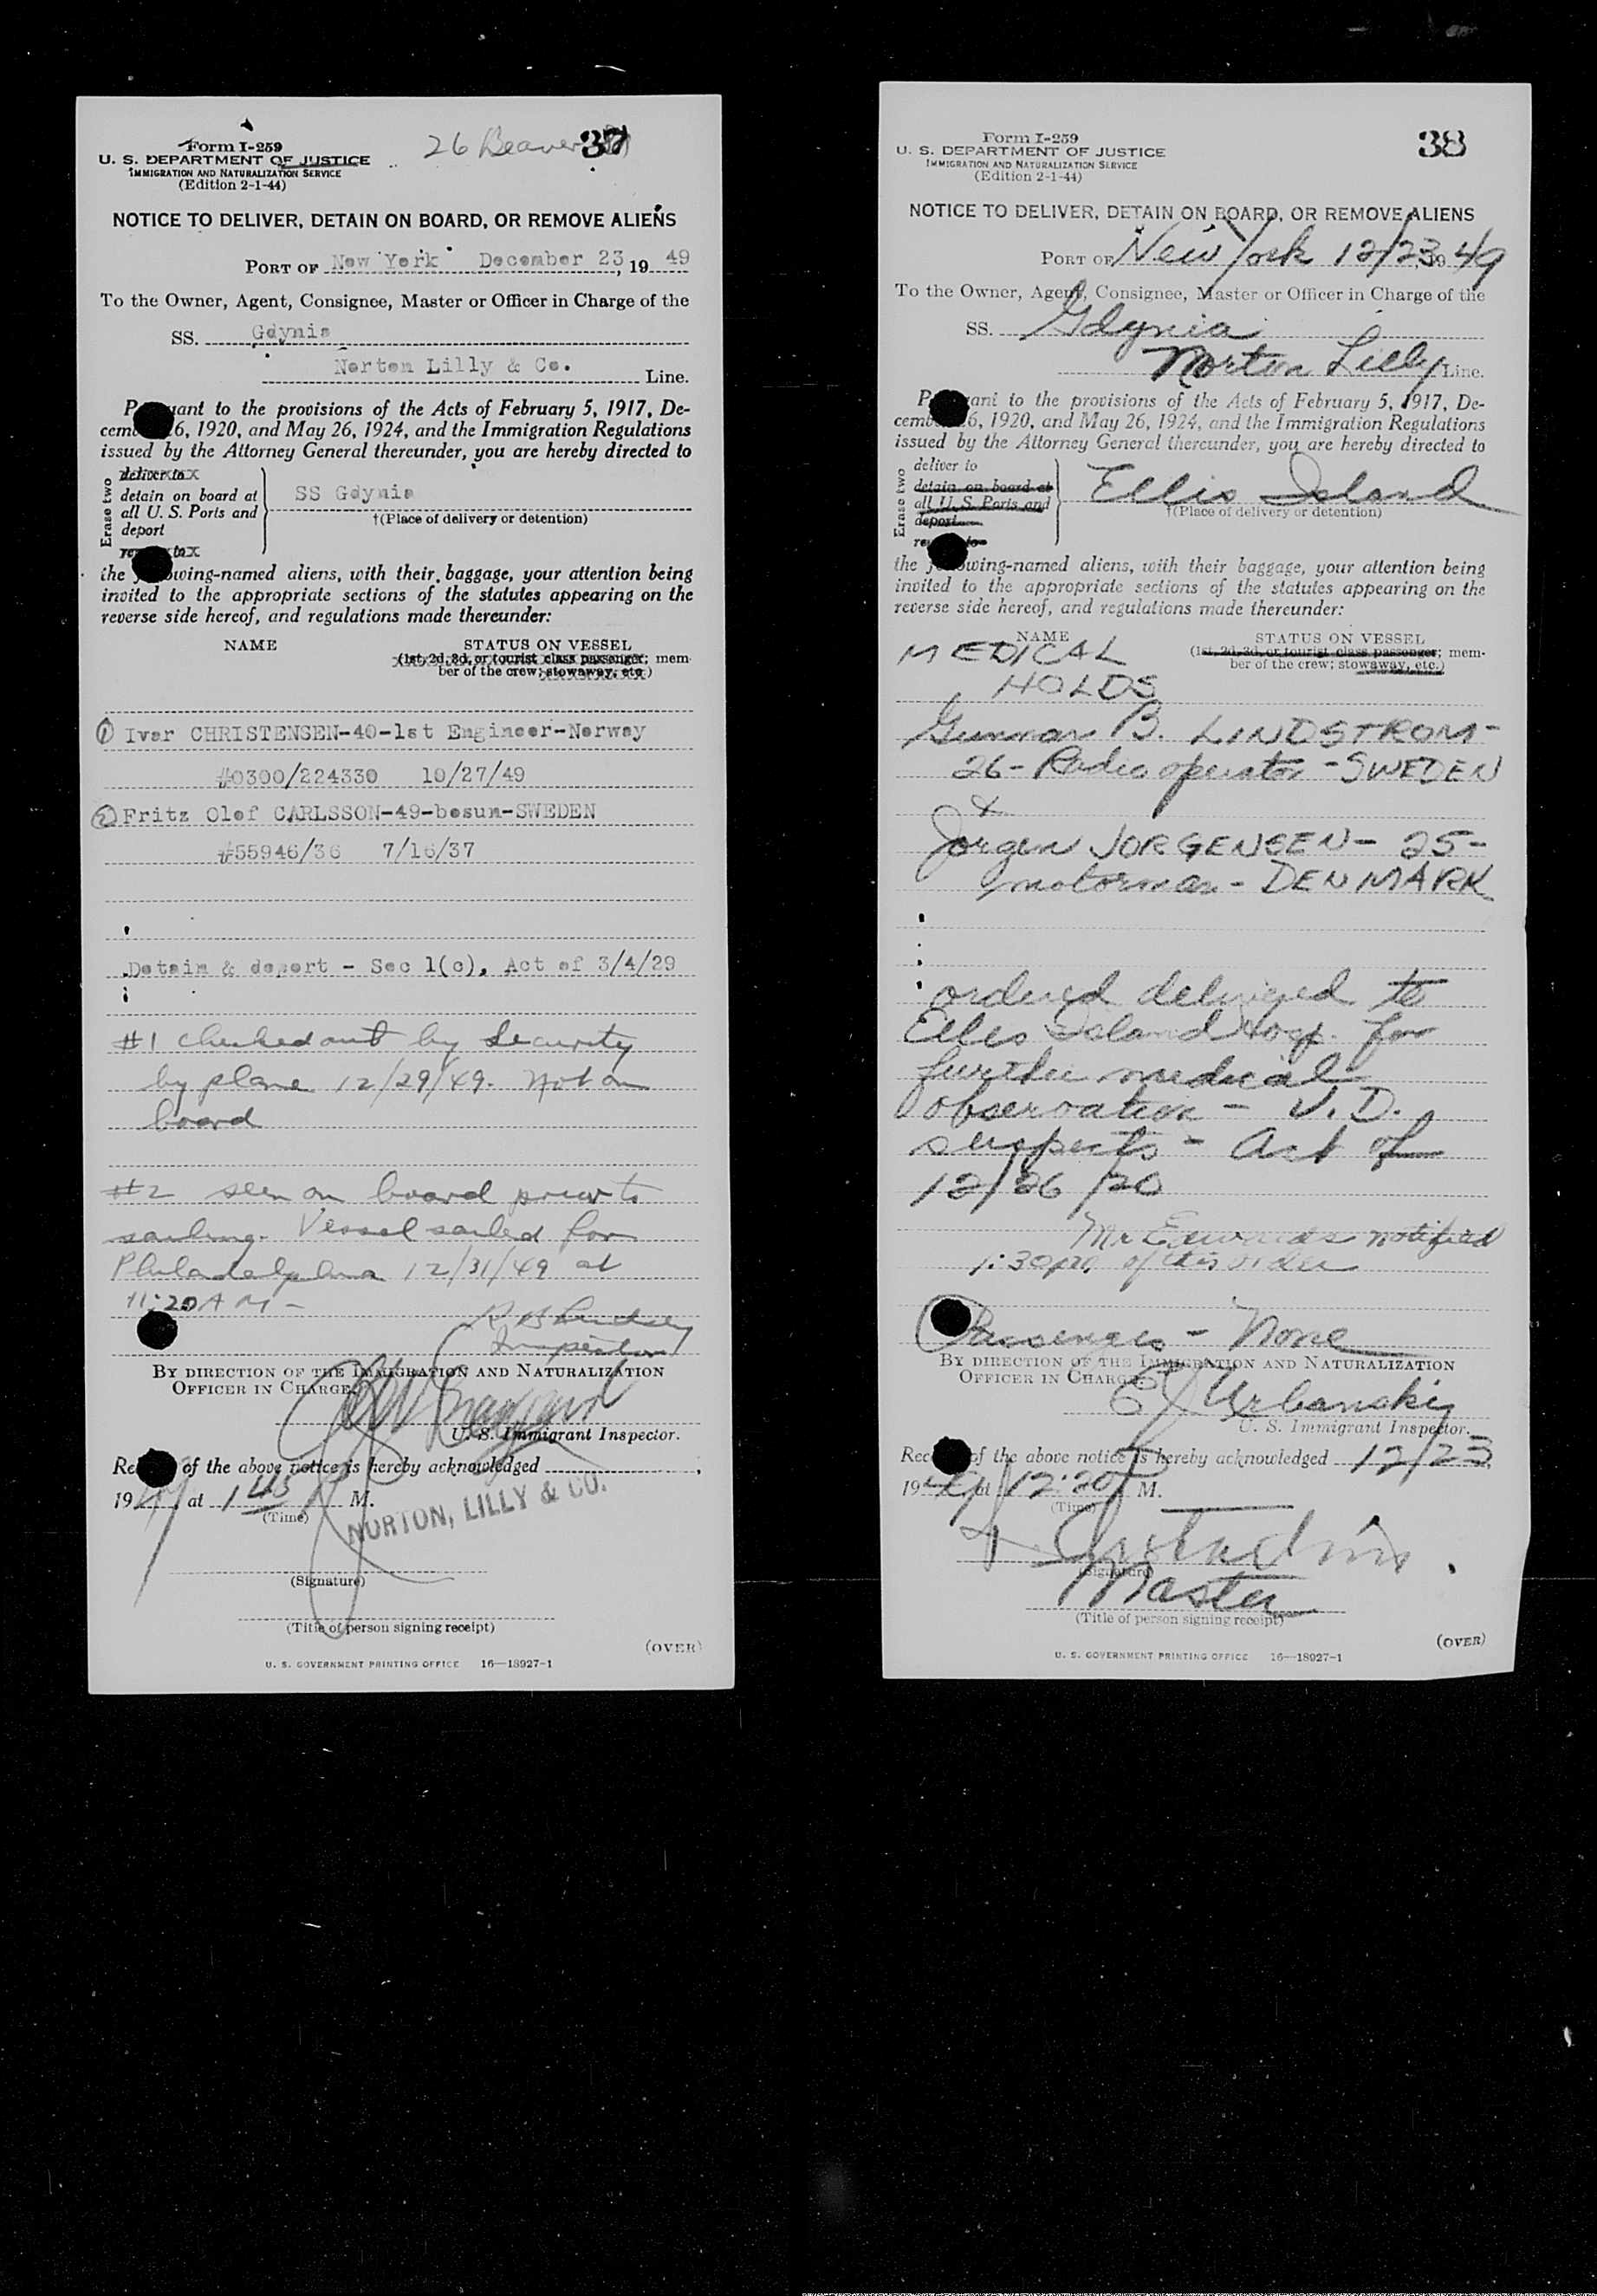 Form I-259
U. S. DEPARTMENT OF JUSTICE
IMMIGRATION AND NATURALIZATION SERVICE
(Edition 2-1-44)
26 Beaver
37
NOTICE TO DELIVER, DETAIN ON BOARD, OR REMOVE ALIENS
PORT OF New York December 23, 19 49
To the Owner, Agent, Consignee, Master or Officer in Charge of the
SS. Gdynia
Norton Lilly & Co. Line.
Pursuant to the provisions of the Acts of February 5, 1917, De-
cember 26, 1920, and May 26, 1924, and the Immigration Regulations
issued by the Attorney General thereunder, you are hereby directed to
Erase two
deliver to
detain on board at
all U. S. Ports and
deport
remove to
SS Gdynia
†(Place of delivery or detention)
the following-named aliens, with their baggage, your attention being
invited to the appropriate sections of the statutes appearing on the
reverse side hereof, and regulations made thereunder:
NAME
STATUS ON VESSEL
(1st, 2d, 3d, or tourist class passenger; mem-
ber of the crew; stowaway, etc.)
1 Ivar CHRISTENSEN-40-1st Engineer-Norway
#0300/224330 10/27/49
2 Fritz Olof CARLSSON-49-bosun-SWEDEN
#55946/36 7/16/37
Detain & deport - Sec 1(c), Act of 3/4/29
#1 checked out by Security
by plane 12/29/49. Not on
board
#2 seen on board prior to
sailing. Vessel sailed for
Philadelphia 12/31/49 at
11:20 AM -
Inspector
BY DIRECTION OF THE IMMIGRATION AND NATURALIZATION
OFFICER IN CHARGE.
U. S. Immigrant Inspector.
Receipt of the above notice is hereby acknowledged
1949, at 1 45 M.
(Time)
NORTON, LILLY & CO.
(Signature)
(Title of person signing receipt)
(OVER)
U. S. GOVERNMENT PRINTING OFFICE 16—18927-1
Form I-259
U. S. DEPARTMENT OF JUSTICE
IMMIGRATION AND NATURALIZATION SERVICE
(Edition 2-1-44)
38
NOTICE TO DELIVER, DETAIN ON BOARD, OR REMOVE ALIENS
PORT OF New York 12/23, 19 49
To the Owner, Agent, Consignee, Master or Officer in Charge of the
SS. Gdynia
Norton Lilly Line.
Pursuant to the provisions of the Acts of February 5, 1917, De-
cember 26, 1920, and May 26, 1924, and the Immigration Regulations
issued by the Attorney General thereunder, you are hereby directed to
Erase two
deliver to
detain on board at
all U. S. Ports and
deport
remove to
Ellis Island
†(Place of delivery or detention)
the following-named aliens, with their baggage, your attention being
invited to the appropriate sections of the statutes appearing on the
reverse side hereof, and regulations made thereunder:
NAME
STATUS ON VESSEL
(1st, 2d, 3d, or tourist class passenger; mem-
ber of the crew; stowaway, etc.)
MEDICAL
HOLDS
Gunnar B. LINDSTROM-
26- Radio operator - SWEDEN
&
Jorgen JORGENSEN- 25-
motorman - DENMARK
ordered delivered to
Ellis Island Hosp. for
further medical
observation - V.D.
suspects - Act of
12/26/20
Mr Edwards notified
1:30pm of this order
Passengers - None
BY DIRECTION OF THE IMMIGRATION AND NATURALIZATION
OFFICER IN CHARGE.
Urbanski
U. S. Immigrant Inspector.
Receipt of the above notice is hereby acknowledged 12/23,
1949 at 12:20 P M.
(Time)
(Signature)
Master
(Title of person signing receipt)
(OVER)
U. S. GOVERNMENT PRINTING OFFICE 16—18927-1